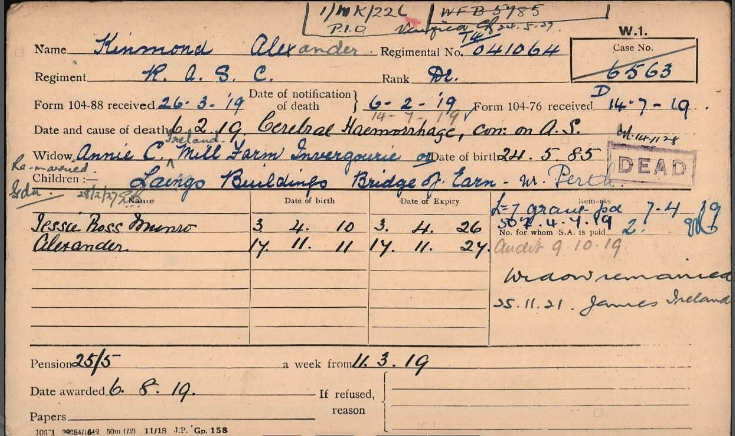 1/MK/226 WFB 5985
P.I.O
W.1.
Name Kinmond Alexander. Regimental No. 041064 Case No.
6563
Regiment R. A. S. C. Rank Dr. D
Form 104-88 received 26-3-'19 Date of notification of death 6-2-'19 Form 104-76 received 14-7-19.
14-7-19
Date and cause of death 6.2.19. Cerebral Haemorrhage, con: on A.S.
Ireland
Widow Annie C. Mill Farm Invergourie or Date of birth 24.5.85
DEAD
Re-married
Children :— Laings Buildings Bridge of Earn nr. Perth.
28/2/27
Name Date of birth Date of Expiry Remarks
£7 grant pd 7-4-19
Jessie Ross Munro 3. 4. 10 3. 4. 26 No. for whom S.A. is paid 2.
Alexander. 17. 11. 11 17. 11. 27. Audit 9-10-19.
Widow remarried
25.11.21. James Ireland
Pension 25/5 a week from 11.3.19
Date awarded 6. 8. 19. If refused, reason
Papers
50m (12) 11/18 J.P. Gp. 158